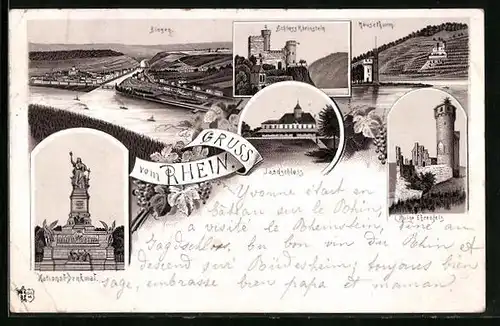 Bingen
Schloss Rheinstein
Mäusethurm
GRUSS
vom RHEIN
Jagdschloss
Ruine Ehrenfels
National-Denkmal.
Yvonne était en
bâteau sur le Rhin,
a visité le Rheinstein, dîné au
Jagdschloss, bu bon vin du Rhin et
descend sur Rüdesheim; toujours bien
sage, embrasse bien papa et maman